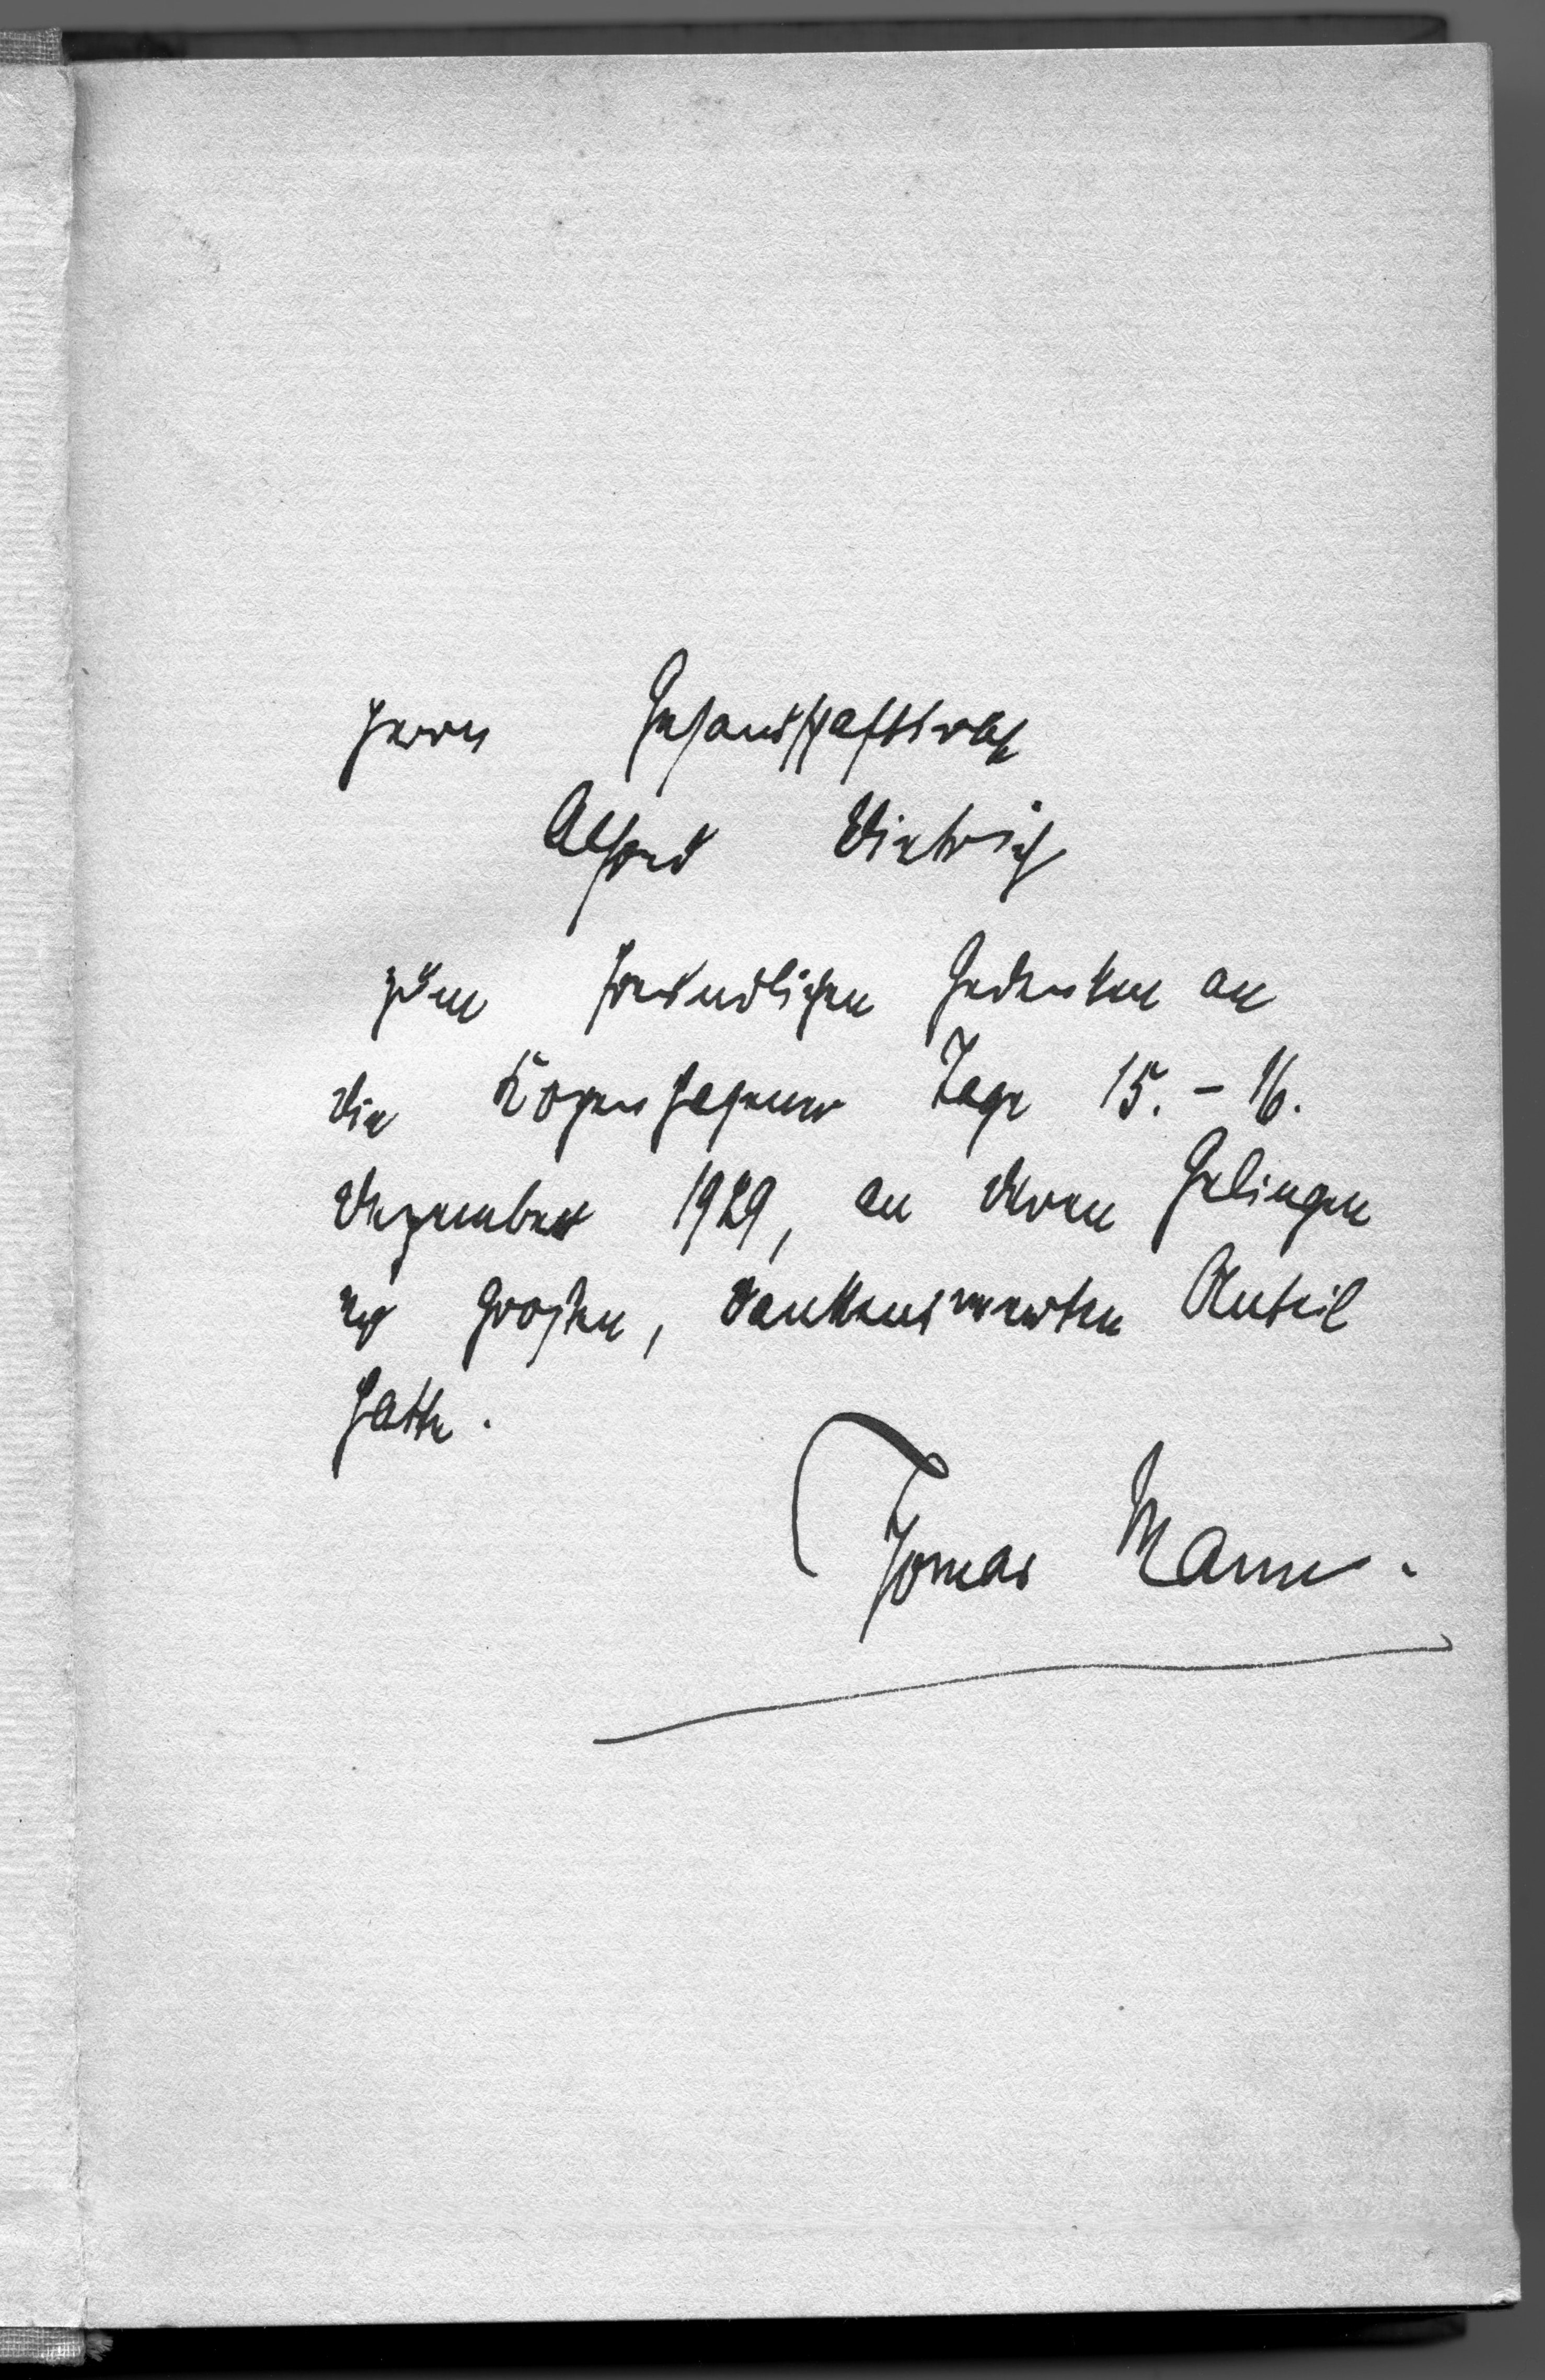 Herrn Gesandschaftsrat
Alfred Dietrich
zum freundlichen Gedenken an
die Kopenhagener Tage 15.-16.
Dezember 1929, an deren Gelingen
er großen, dankenswerten Anteil
hatte.
Thomas Mann.